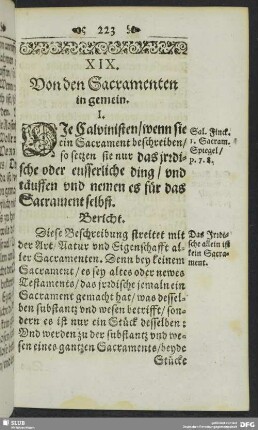 223
XIX.
Von den Sacramenten
in gemein.
I.
DIe Calvinisten/wenn sie
ein Sacrament beschreiben/
so setzen sie nur das jrrdi-
sche oder eusserliche ding/ vnd
täuffen vnd nennen es für das
Sacrament selbst.
Sal. Finck.
1. Sacram.
Spiegel/
p. 7. 8.
Bericht.
Diese Beschreibung streitet mit
der Art/ Natur vnd Eigenschafft al-
ler Sacramenten. Denn bey keinem
Sacrament/ es sey altes oder newes
Testaments/ das jrrdische jemaln ein
Sacrament gemacht hat/ was dessel-
ben substantz vnd wesen betrifft/ son-
dern es ist nur ein Stück desselben:
Vnd werden zu der substantz vnd we-
sen eines gantzen Sacraments/ beyde
Stücke
Das Jrrdi-
sche allein ist
kein Sacra-
ment.
SLUB
DFG